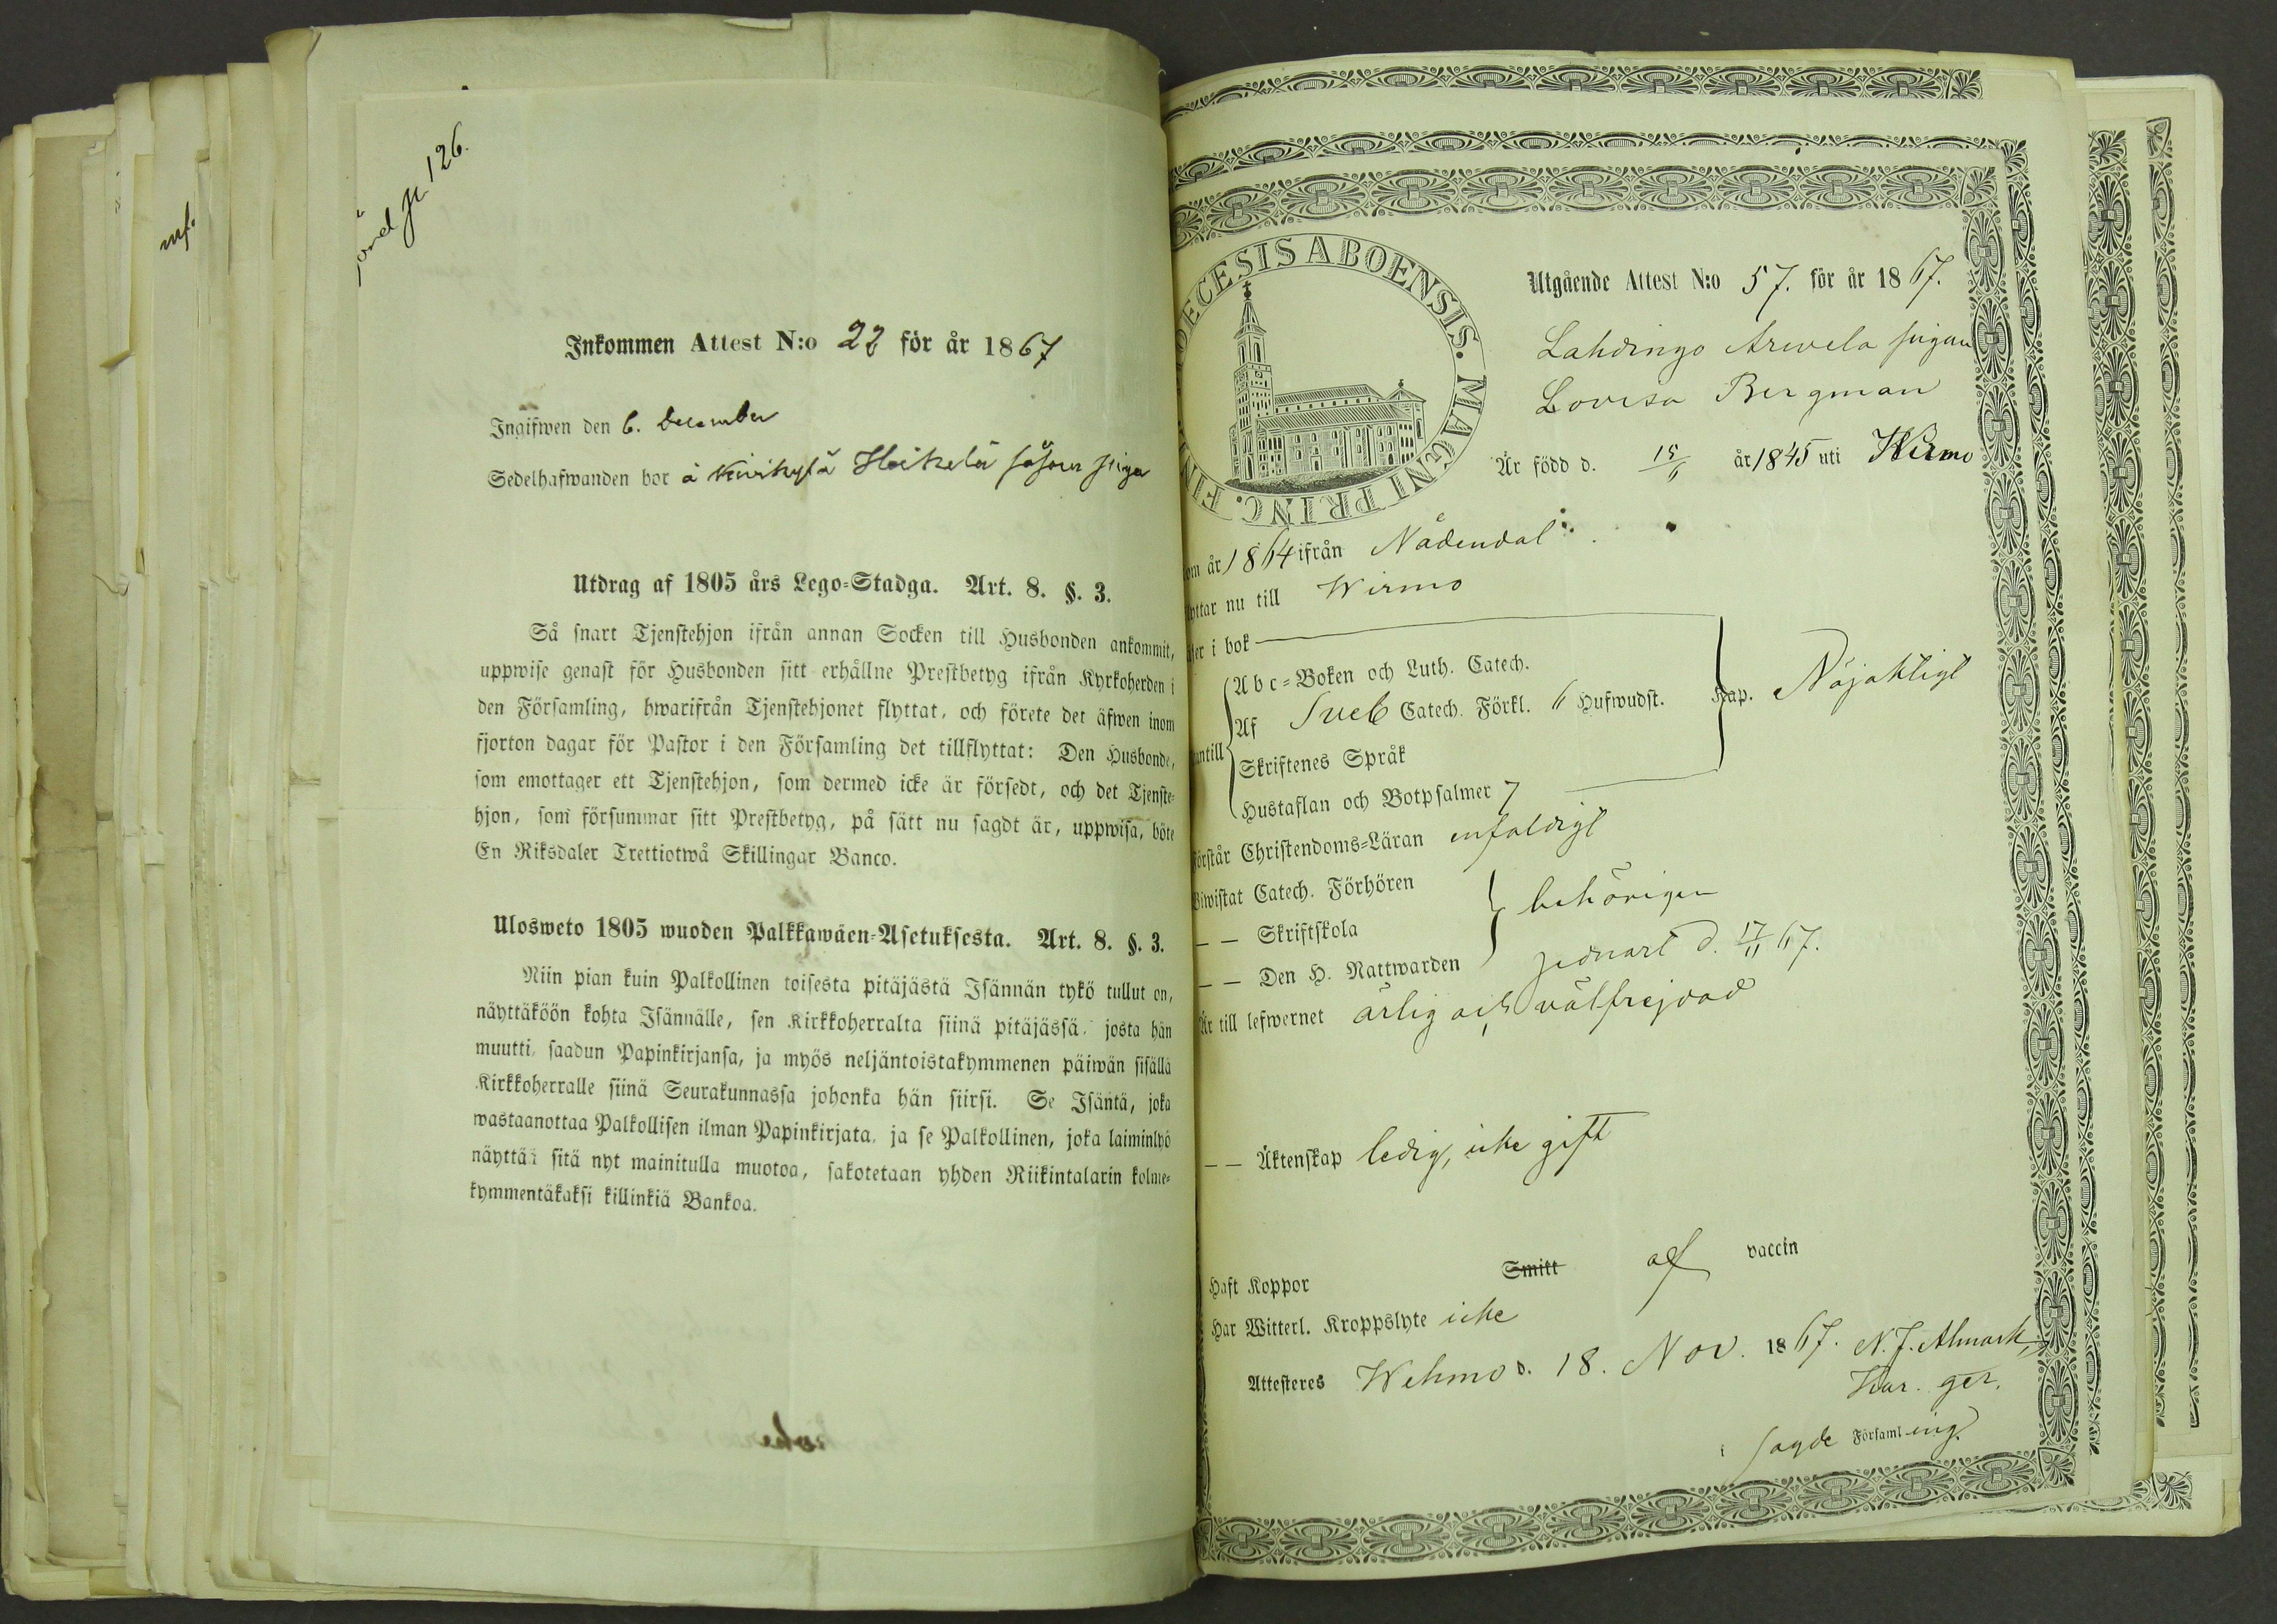 126.
Inkommen Attest N:o 22 för år 1867
Ingifwen den 6. December
Sedelhafwanden bor å Heikelä såsom piga
Utdrag af 1805 års Lego-Stadga. Art. 8. §. 3.
Så snart Tjenstehjon ifrån annan Socken till Husbonden ankommit,
uppwise genast för Husbonden sitt erhållne Prestbetyg ifrån Kyrkoherden i
den Församling, hwarifrån Tjenstehjonet flyttat, och förete det äfwen inom
fjorton dagar för Pastor i den Församling det tillflyttat: Den Husbonde,
som emottager ett Tjenstehjon, som dermed icke är försedt, och det Tjenste-
hjon, som försummar sitt Prestbetyg, på sätt nu sagdt är, uppwisa, böte
En Riksdaler Trettiotwå Skillingar Banco.
Ulosweto 1805 wuoden Palkkawäen-Asetuksesta. Art. 8. §. 3.
Niin pian kuin Palkollinen toisesta pitäjästä Isännän tykö tullut on,
näyttäköön kohta Isännälle, sen Kirkkoherralta siinä pitäjässä, josta hän
muutti, saadun Papinkirjansa, ja myös neljäntoistakymmenen päiwän sisällä
Kirkkoherralle siinä Seurakunnassa johonka hän siirsi. Se Isäntä, joka
wastaanottaa Palkollisen ilman Papinkirjata, ja se Palkollinen, joka laiminlyö
näyttää sitä nyt mainitulla muotoa, sakotetaan yhden Riikintalarin kolme-
kymmentäkaksi killinkiä Bankoa.
ECESIS ABOENSIS. MAGNI PRINC. FIN
Utgående Attest N:o 57. för år 1867.
Lahdingo Arwela pigan
Lovisa Bergman
Är född d. 15/6 år 1845 uti Wirmo
om år 1864 ifrån Nådendal
yttar nu till Wirmo
er i bok
Abc-Boken och Luth. Catech.
Af Sveb Catech. Förkl. 6 Hufwudst. Kap. Nöjaktigt
untill
Skriftenes Språk
Hustaflan och Botpsalmer 7
Förstår Christendoms-Läran enfaldigt
Biwistat Catech. Förhören
— — Skriftskola behörigen
— — Den H. Nattwarden sednast d. 17/11 67.
Är till lefwernet ärlig och välfrejdad
— — Äktenskap ledig, icke gift
Haft Koppor Smitt af vaccin
Har Witterl. Kroppslyte icke
Attesteres Wehmo d. 18. Nov. 1867. N. J. Almark,
i sagde Församling.